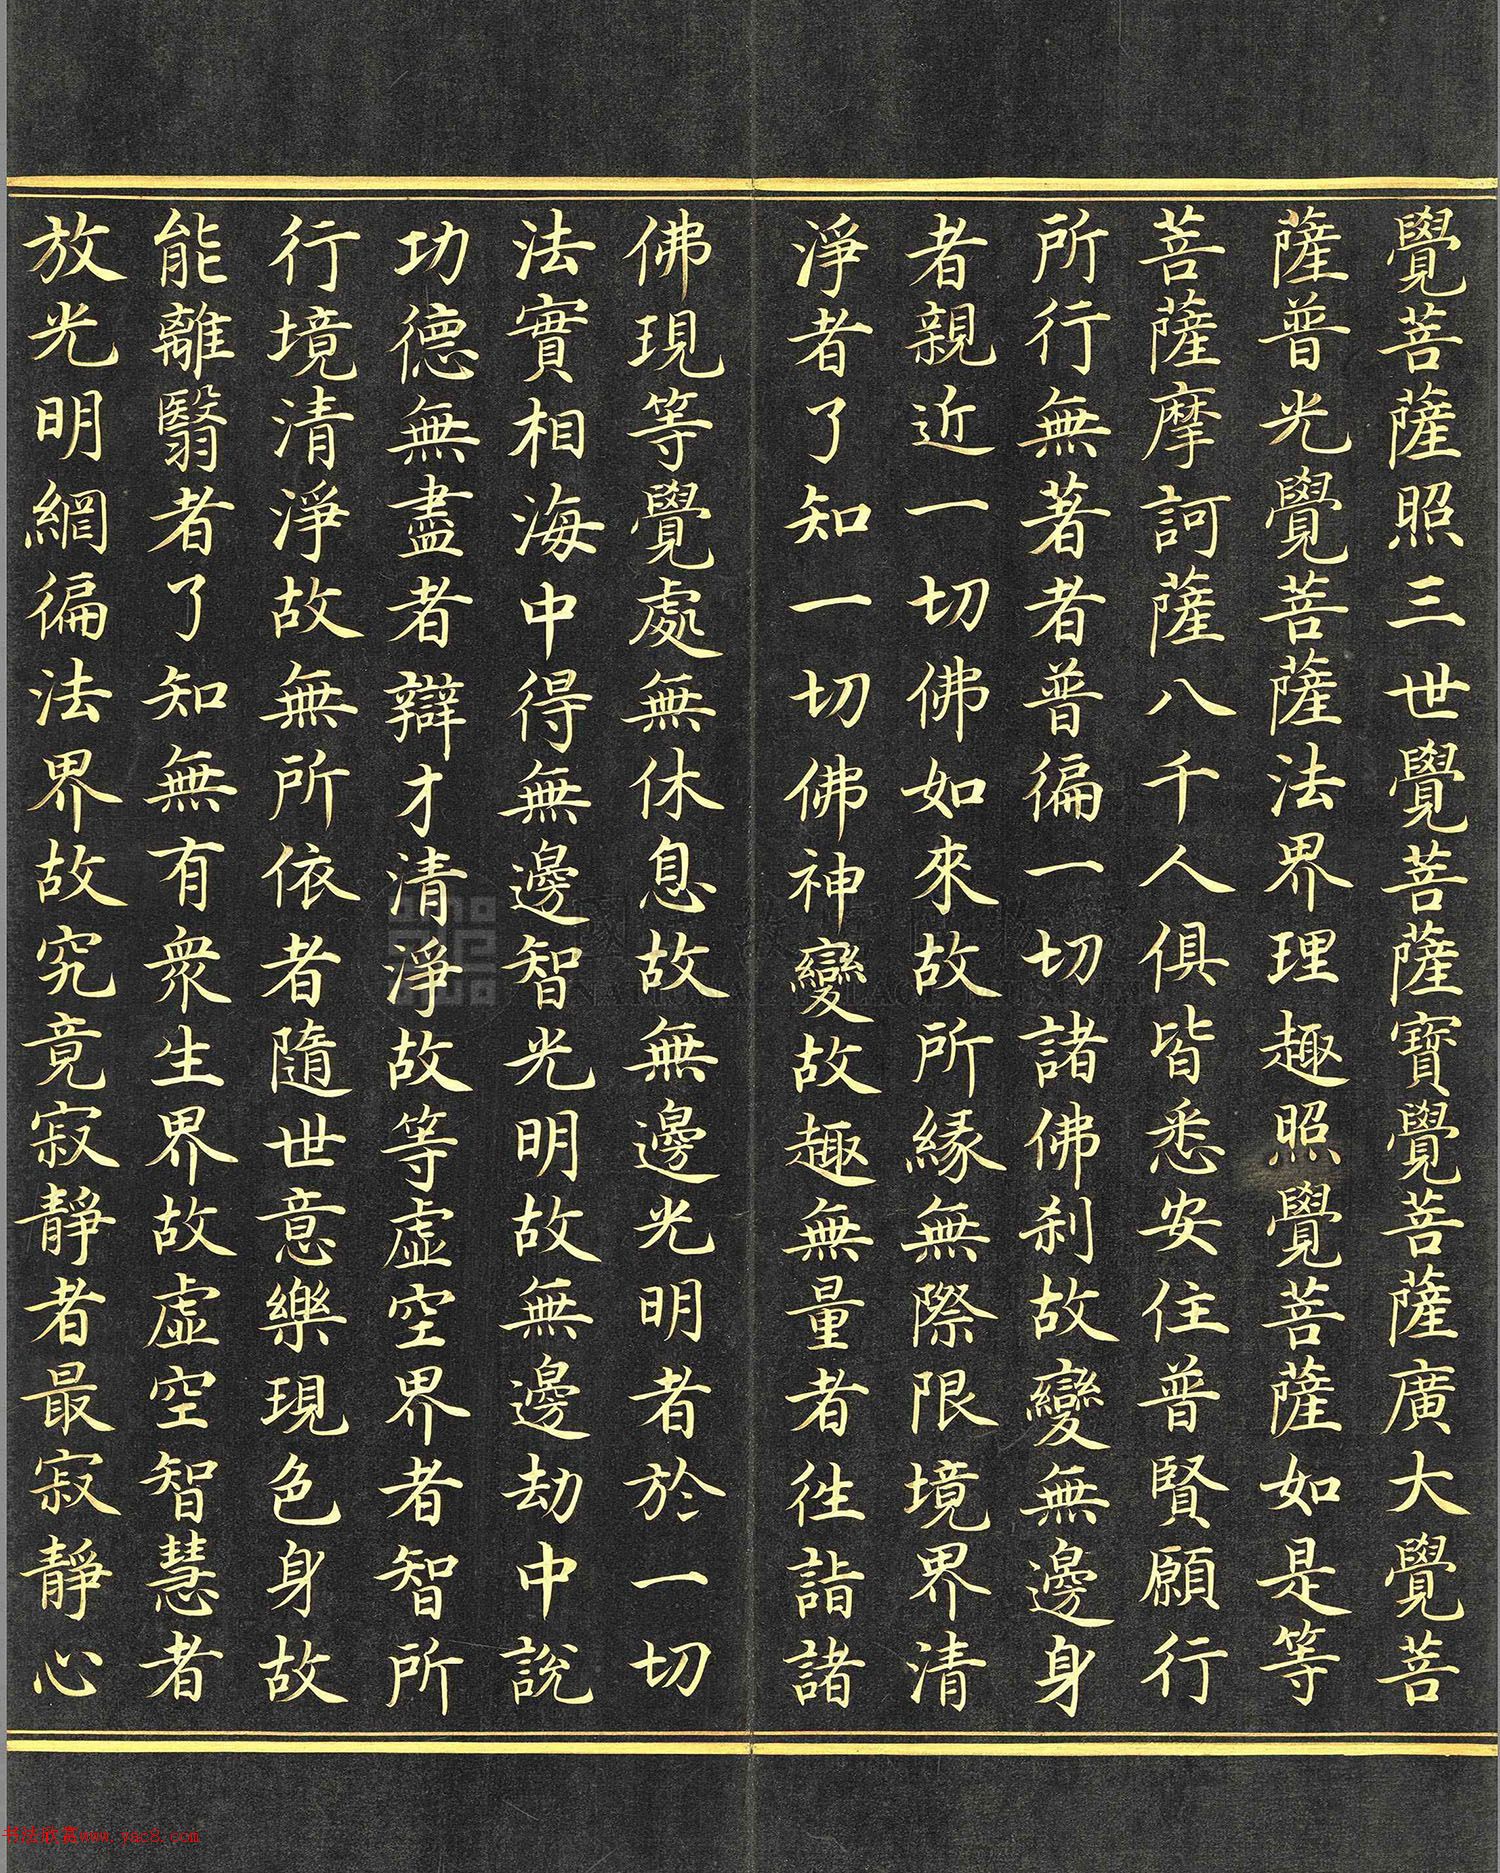 覺菩薩照三世覺菩薩寶覺菩薩廣大覺菩
薩普光覺菩薩法界理趣照覺菩薩如是等
菩薩摩訶薩八千人俱皆悉安住普賢願行
所行無著者普徧一切諸佛刹故變無邊身
者親近一切佛如來故所緣無際限境界清
淨者了知一切佛神變故趣無量者徃詣諸
佛現等覺處無休息故無邊光明者於一切
法實相海中得無邊智光明故無邊劫中說
功德無盡者辯才清淨故等虛空界者智所
行境清淨故無所依者隨世意樂現色身故
能離翳者了知無有衆生界故虛空智慧者
放光明網徧法界故究竟寂靜者最寂靜心
NATIONAL PALACE MUSEUM
书法欣赏www.yac8.com